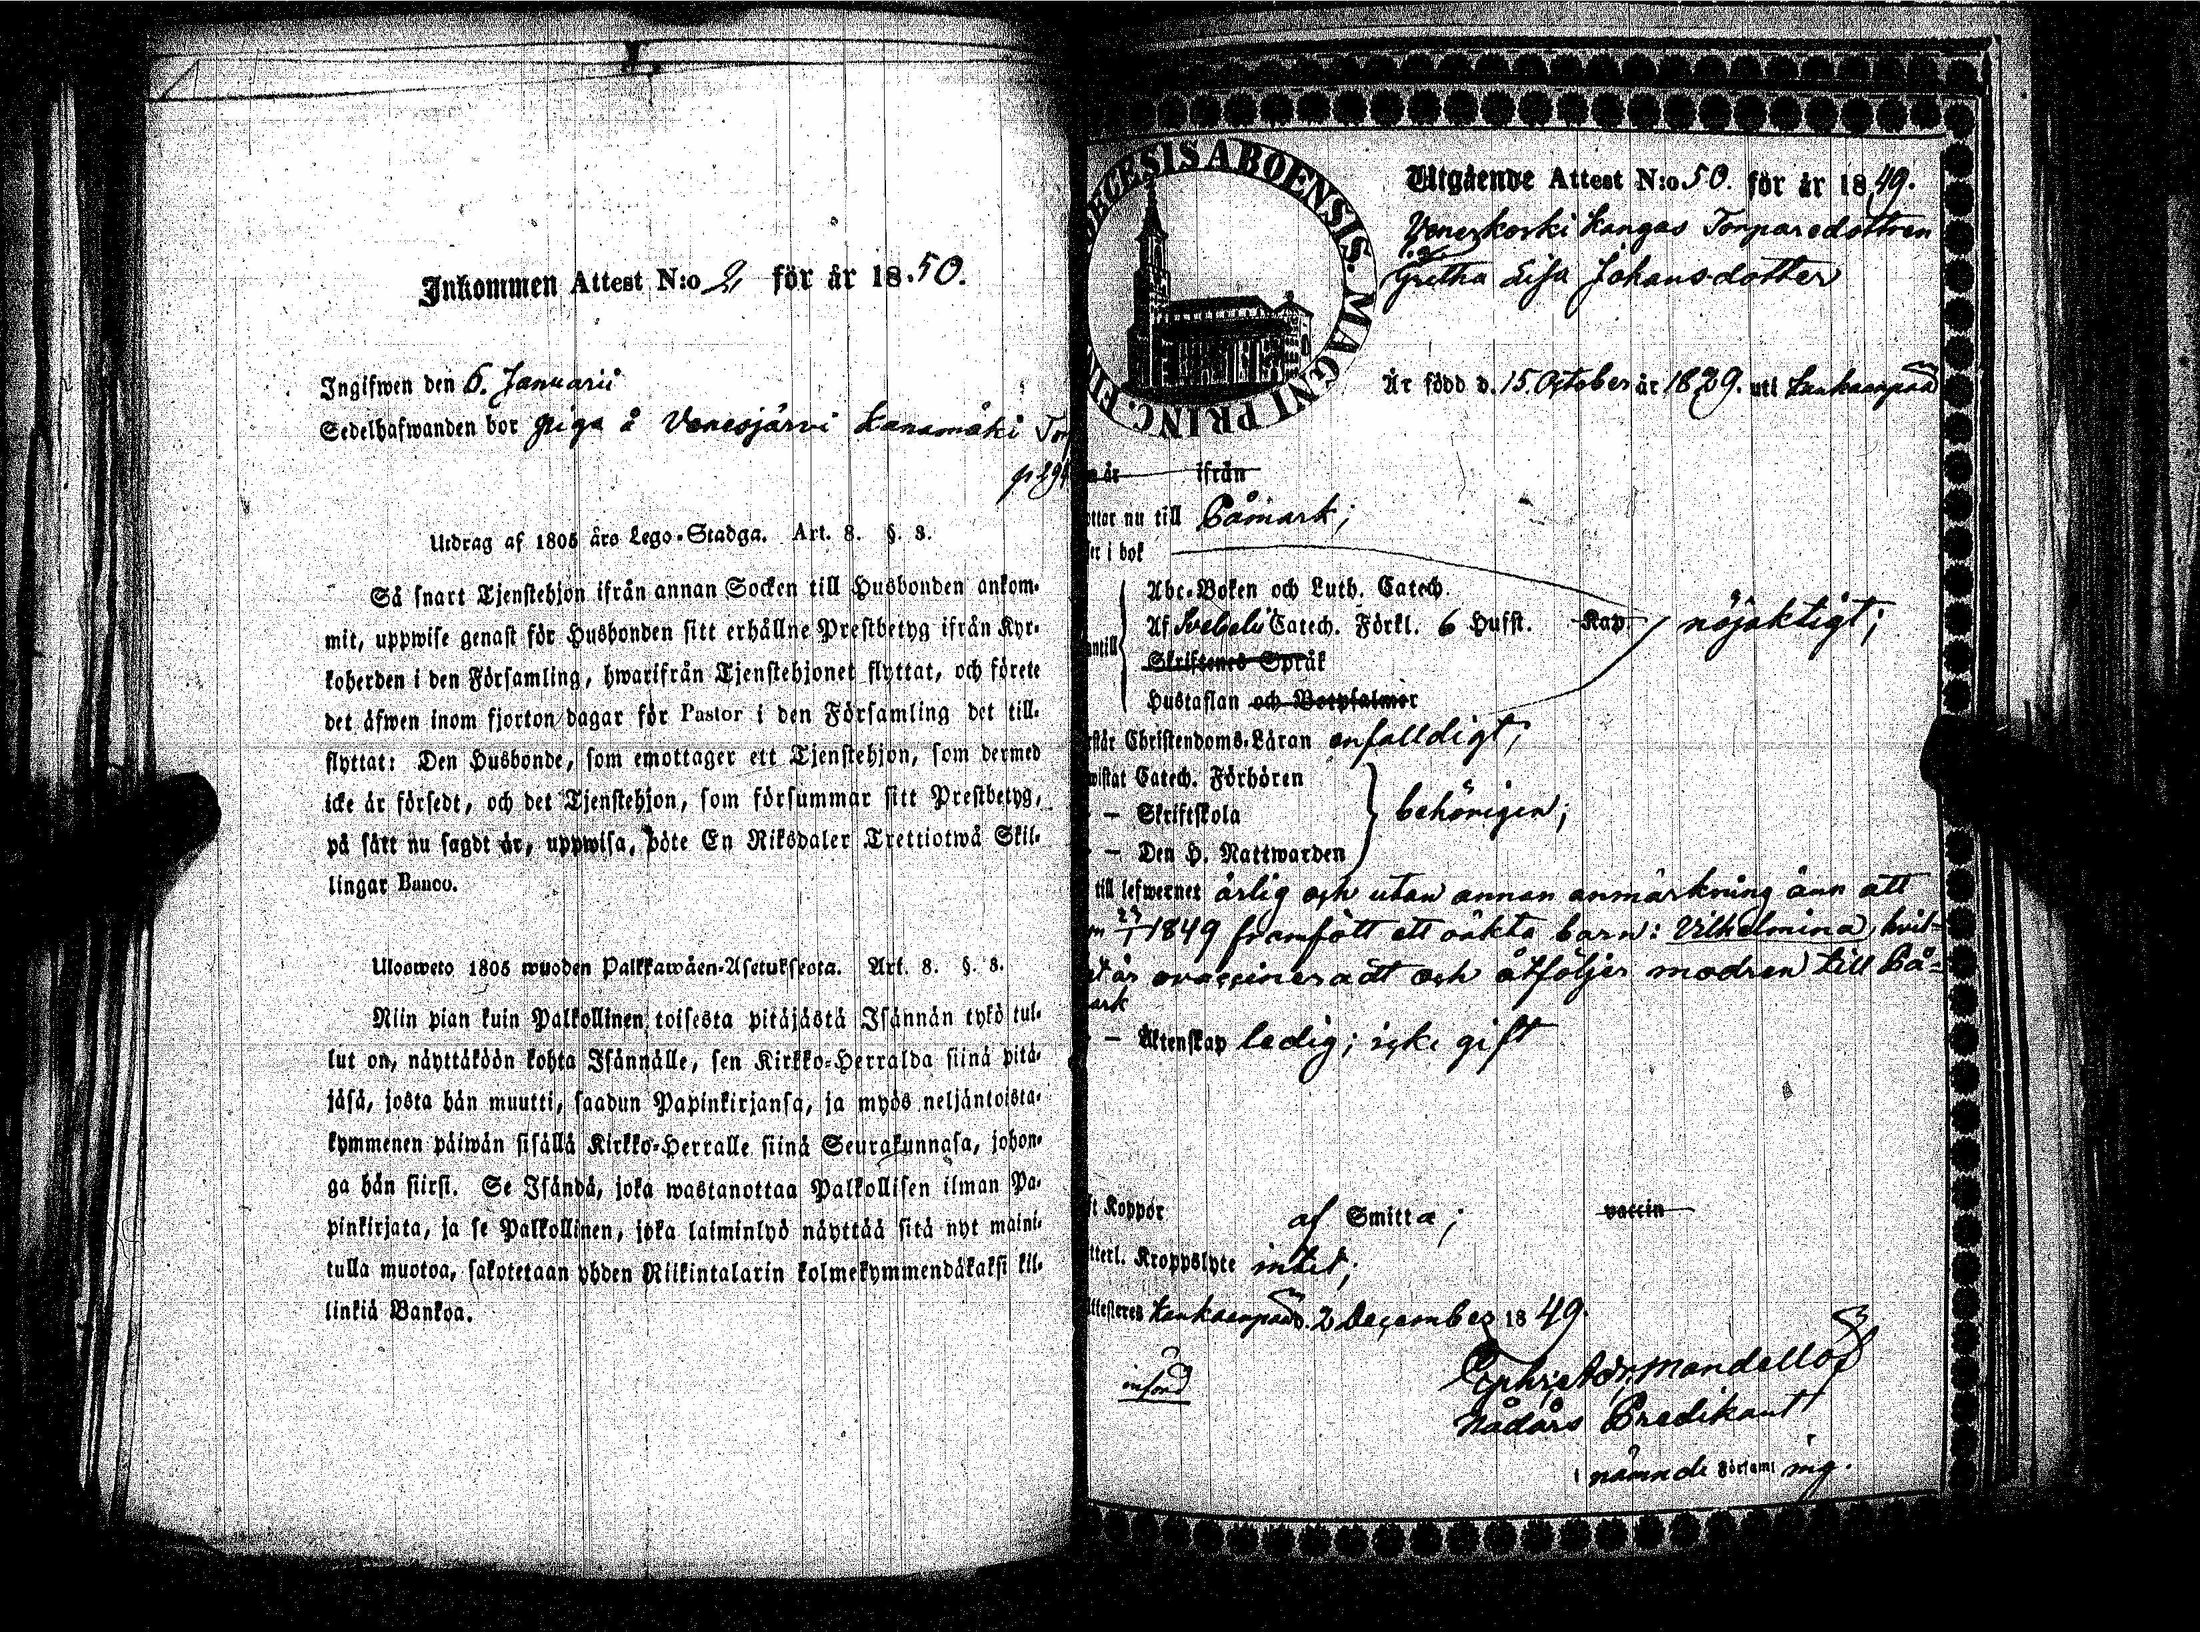 Inkommen Attest N:o 2, för år 18.50.
Ingifwen den 6. Januarii
Sedelhafwanden bor piga å Venesjärvi Kanamäki
Utdrag af 1805 års Lego-Stadga. Art. 8. §. 8.
Så snart Tjenstehjon ifrån annan Socken till Husbonden ankom-
mit, uppwise genast för Husbonden sitt erhållne Prestbetyg ifrån Kyr-
koherden i den Församling, hwarifrån Tjenstehjonet flyttat, och förete
det äfwen inom fjorton dagar för Pastor i den Församling det till-
flyttat: Den Husbonde, som emottager ett Tjenstehjon, som dermed
icke är försedt, och det Tjenstehjon, som försummar sitt Prestbetyg,
på sätt nu sagdt är, uppwisa, böte En Riksdaler Trettiotwå Skil-
lingar Banco.
Ulosweto 1805 wuoden Palkkawäen-Asetuksesta. Art. 8. §. 8.
Niin pian kuin Palkollinen toisesta pitäjästä Isännän tykö tul-
lut on, näyttäköön kohta Isännälle, sen Kirkko-Herralda siinä pitä-
jäsä, josta hän muutti, saadun Papinkirjansa, ja myös neljäntoista-
kymmenen päiwän sisällä Kirkko-Herralle siinä Seurakunnasa, johon-
ga hän siirsi. Se Isändä, joka wastanottaa Palkollisen ilman Pa-
pinkirjata, ja se Palkollinen, joka laiminlyö näyttää sitä nyt maini-
tulla muotoa, sakotetaan yhden Riikintalarin kolmekymmendäkaksi kil-
linkiä Bankoa.
DIOECESIS ABOENSIS. MAGNI PRINC. FIN
Utgående Attest N:o 50. för år 1849.
Veneskoski Kangas Torparedottren
Gretha Lisa Johansdotter
Är född d. 15. October år 1829. uti Kankaanpää
år ifrån
nu till Påmark;
i bok
Abc-Boken och Luth. Catech.
Af Svebelii Catech. Förkl. 6 Hufst. Kap nöjaktigt;
Skriftenes Språk
Hustaflan och Botpsalmer
Christendoms-Läran enfalldigt;
Catech. Förhören
— Skriftskola behörigen;
— Den H. Nattwarden
till lefwernet ärlig och utan annan anmärkning änn att
1849 framfött ett oäkta barn: Vilhelmina, hvil-
är ovaccineradt och åtföljer modren till På-
mark
— Äktenskap ledig; icke gift
Koppor af Smitta; vaccin
Kroppslyte intet;
Attesteres Kankaanpää d. 2 December 1849.
införd
Mandellof
Nådårs Predikant
i nämnde Församl ing.